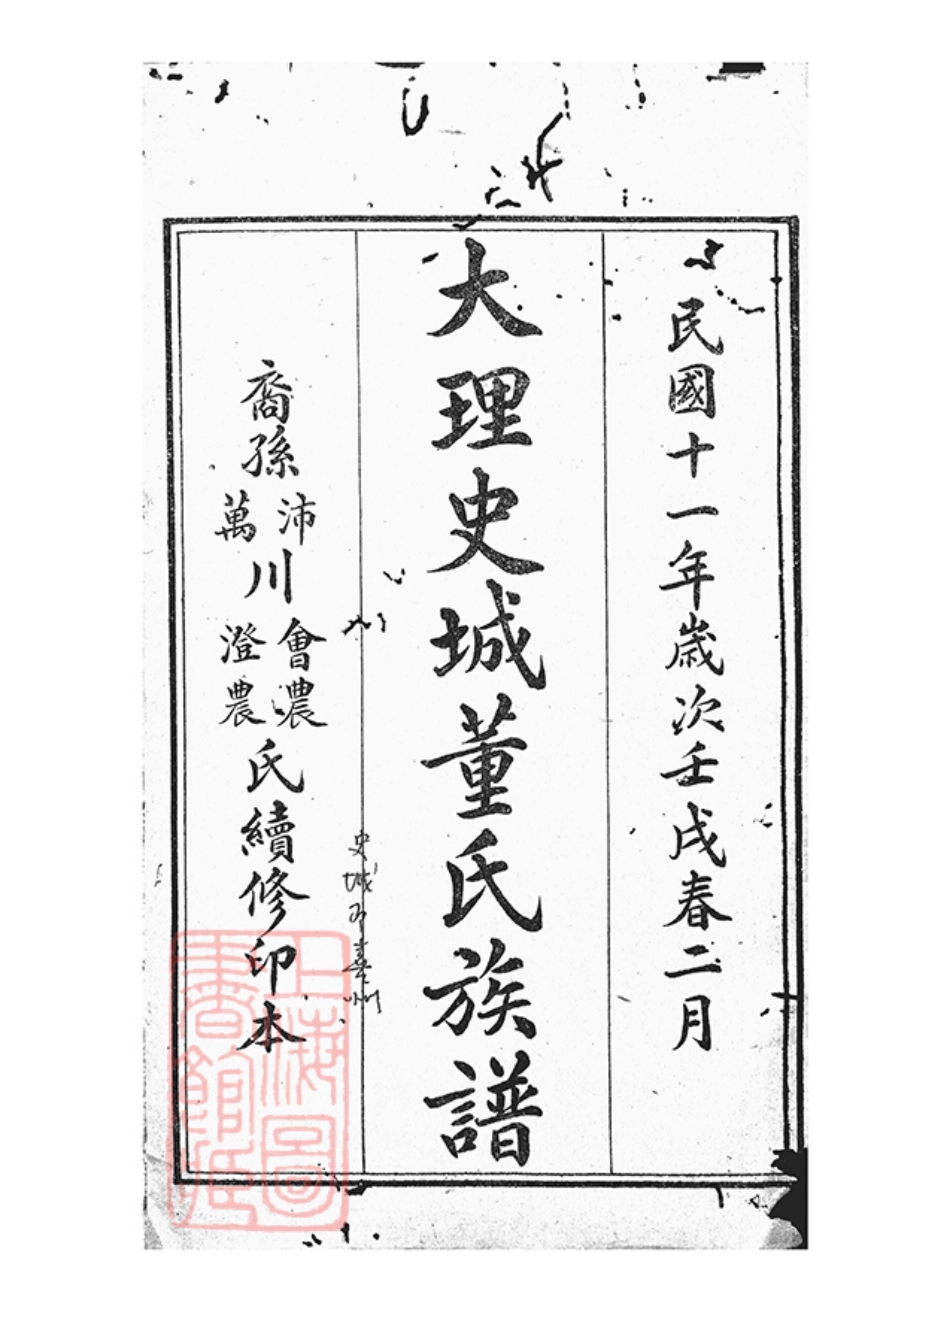 民國十一年歲次壬戌春二月
大理史城董氏族譜
裔孫
沛
萬
川
會農
澄農
氏續修印本
史城即喜洲
上海圖
書館藏